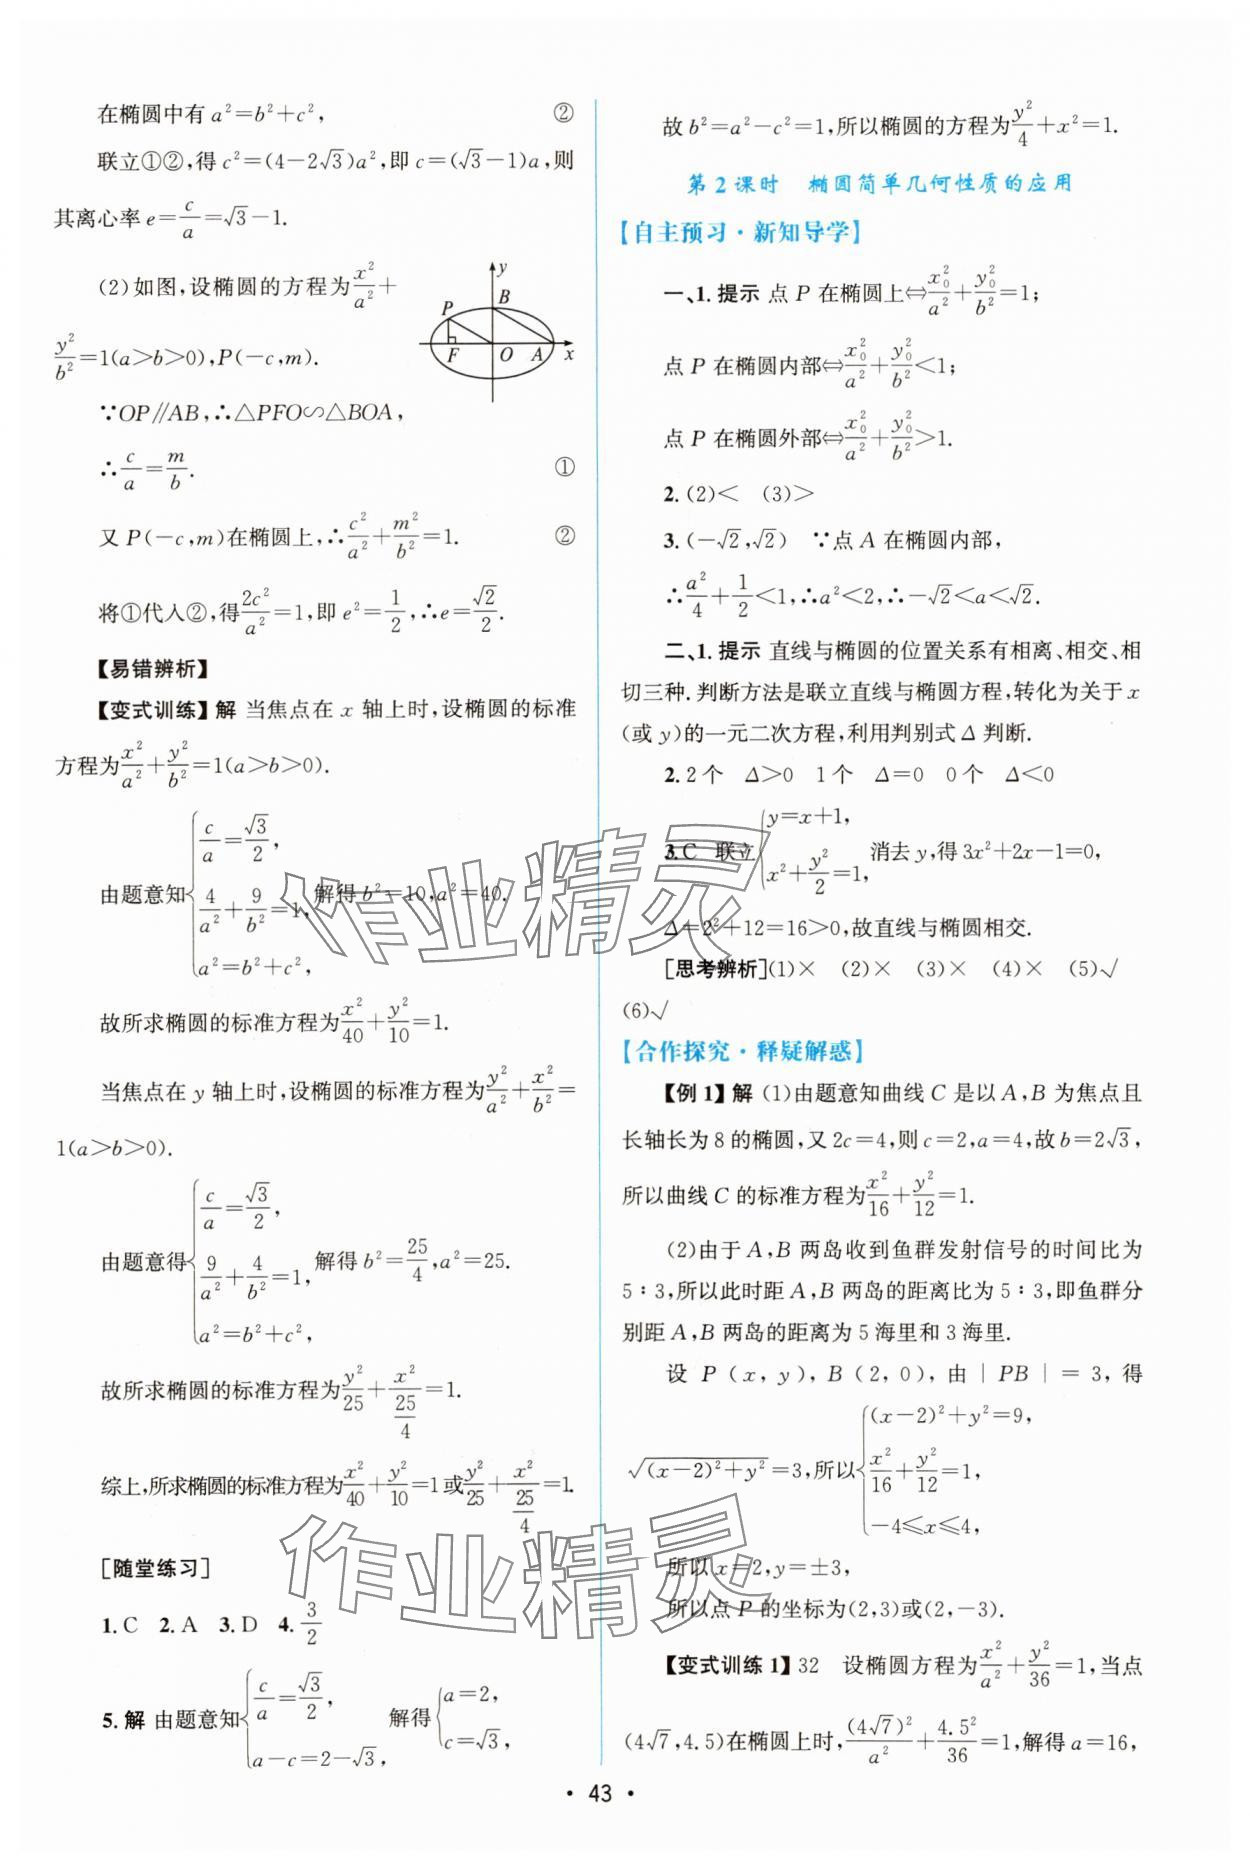 在椭圆中有 a²=b²+c², ②
联立①②,得 c²=(4-2√3)a²,即 c=(√3-1)a,则
其离心率 e=c/a=√3-1.
(2)如图,设椭圆的方程为x²/a²+
y²/b²=1(a>b>0),P(-c,m).
y
B
P
F O A x
∵OP∥AB,∴△PFO∽△BOA,
∴c/a=m/b. ①
又 P(-c,m)在椭圆上,∴c²/a²+m²/b²=1. ②
将①代入②,得2c²/a²=1,即 e²=1/2,∴e=√2/2.
【易错辨析】
【变式训练】解 当焦点在 x 轴上时,设椭圆的标准
方程为x²/a²+y²/b²=1(a>b>0).
由题意知{c/a=√3/2, 4/a²+9/b²=1, a²=b²+c², 解得 b²=10,a²=40.
故所求椭圆的标准方程为x²/40+y²/10=1.
当焦点在 y 轴上时,设椭圆的标准方程为y²/a²+x²/b²=
1(a>b>0).
由题意得{c/a=√3/2, 9/a²+4/b²=1, a²=b²+c², 解得 b²=25/4,a²=25.
故所求椭圆的标准方程为y²/25+x²/(25/4)=1.
综上,所求椭圆的标准方程为x²/40+y²/10=1 或y²/25+x²/(25/4)=1.
[随堂练习]
1.C 2.A 3.D 4.3/2
5.解 由题意知{c/a=√3/2, a-c=2-√3, 解得{a=2, c=√3,
故 b²=a²-c²=1,所以椭圆的方程为y²/4+x²=1.
第2课时 椭圆简单几何性质的应用
【自主预习·新知导学】
一、1.提示 点 P 在椭圆上⇔x₀²/a²+y₀²/b²=1;
点 P 在椭圆内部⇔x₀²/a²+y₀²/b²<1;
点 P 在椭圆外部⇔x₀²/a²+y₀²/b²>1.
2.(2)< (3)>
3.(-√2,√2) ∵点 A 在椭圆内部,
∴a²/4+1/2<1,∴a²<2,∴-√2<a<√2.
二、1.提示 直线与椭圆的位置关系有相离、相交、相
切三种.判断方法是联立直线与椭圆方程,转化为关于 x
(或 y)的一元二次方程,利用判别式 Δ 判断.
2.2个 Δ>0 1个 Δ=0 0个 Δ<0
3.C 联立{y=x+1, x²+y²/2=1, 消去 y,得 3x²+2x-1=0,
Δ=2²+12=16>0,故直线与椭圆相交.
[思考辨析](1)× (2)× (3)× (4)× (5)√
(6)√
【合作探究·释疑解惑】
【例1】解 (1)由题意知曲线 C 是以 A,B 为焦点且
长轴长为 8 的椭圆,又 2c=4,则 c=2,a=4,故 b=2√3,
所以曲线 C 的标准方程为x²/16+y²/12=1.
(2)由于 A,B 两岛收到鱼群发射信号的时间比为
5∶3,所以此时距 A,B 两岛的距离比为 5∶3,即鱼群分
别距 A,B 两岛的距离为 5 海里和 3 海里.
设 P(x,y),B(2,0),由|PB|=3,得
√((x-2)²+y²)=3,所以{(x-2)²+y²=9, x²/16+y²/12=1, -4≤x≤4,
所以 x=2,y=±3,
所以点 P 的坐标为(2,3)或(2,-3).
【变式训练1】32 设椭圆方程为x²/a²+y²/36=1,当点
(4√7,4.5)在椭圆上时,(4√7)²/a²+4.5²/36=1,解得 a=16,
· 43 ·
作业精灵
作业精灵